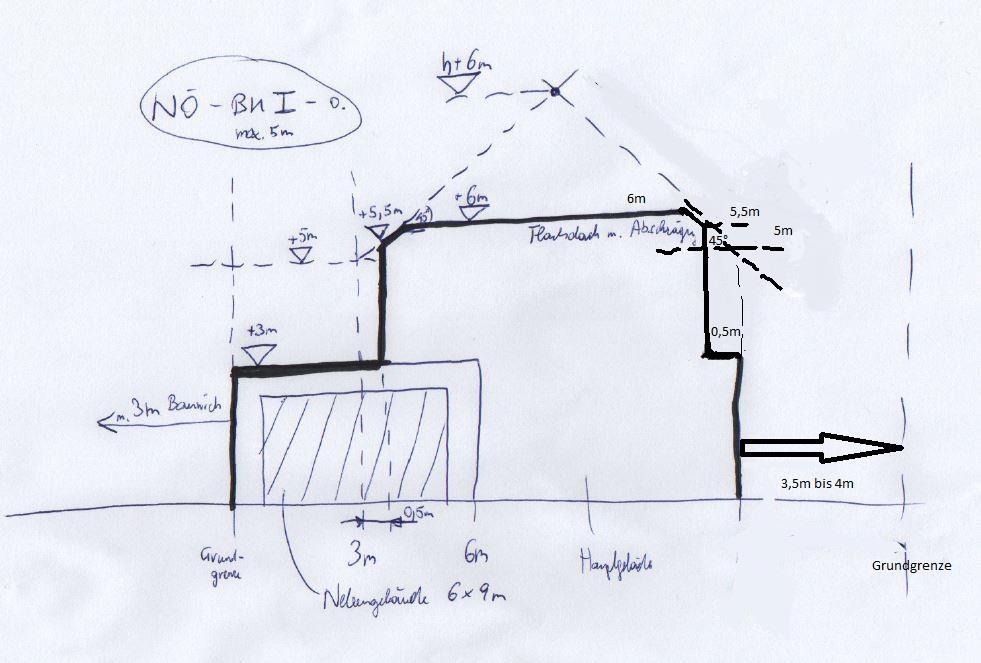 NÖ - BKI - 0.
max. 5m
h+6m
+5,5m
45°
+6m
6m
5,5m
+5m
Flachdach m. Abschrägung
45°
5m
+3m
0,5m
m. 3m Bauwich
3,5m bis 4m
0,5m
Grund-
grenze
3m
6m
Hauptgebäude
Grundgrenze
Nebengebäude 6 x 9m